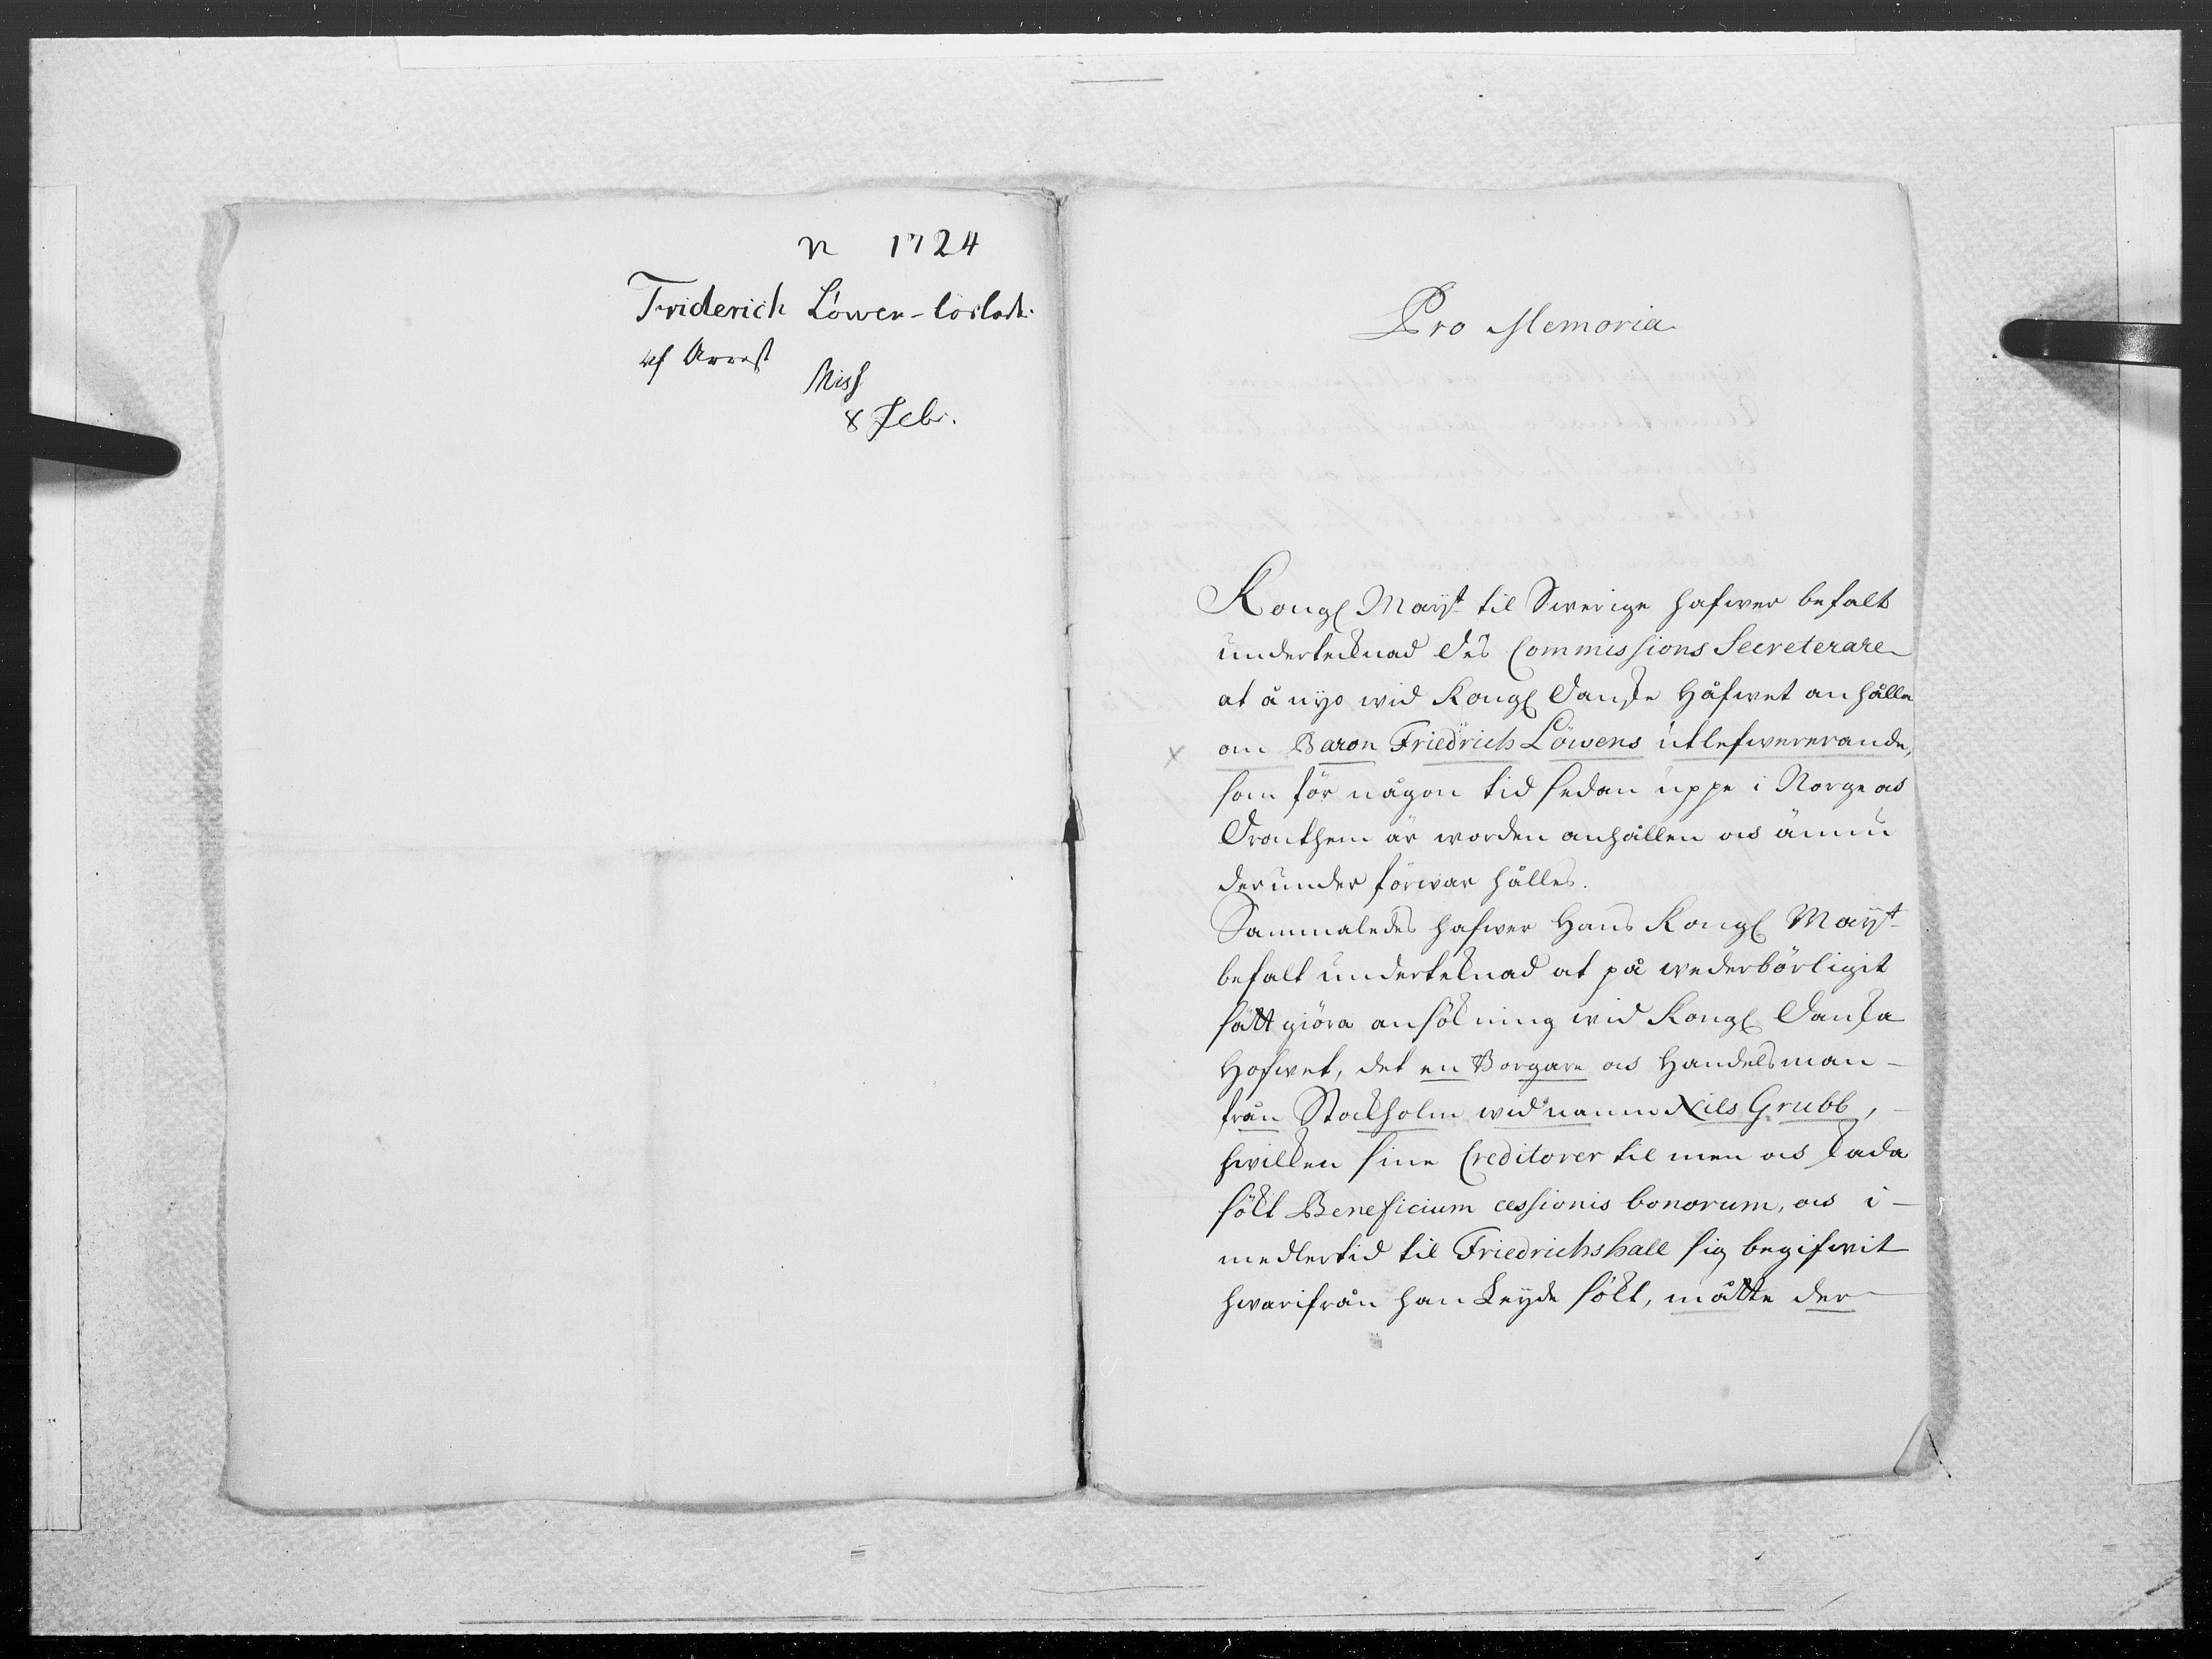 n 1724
Friderich Löwen - lösladt.
af Arrest
Miss
8 Febr.
Pro Memoria
Kongl Maijt til Swerige hafwer befalt
undertecknad Des Commissions Secreterare
at å nyo wid Kongl Danske Håfwet anhålla
x om Baron Friedrich Löwens utlefwererande,
som för någon tid sedan uppe i Norge och
Drontheim är worden anhållen och ännu
der under förwar hålles.
Sammaledes hafwer Hans Kongl Maijt
befalt undertecknad at på wederbörligit
sätt giöra ansökning wid Kongl Danska
Hofwet, det en Borgare och Handelsman
från Stockholm wid namn Nils Grubb,
hwilken sine Creditorer til men och skada
sökt Beneficium cessionis bonorum, och i-
medlertid til Friedrichshall sig begifwit
hwarifrån han Leyde sökt, måtte der